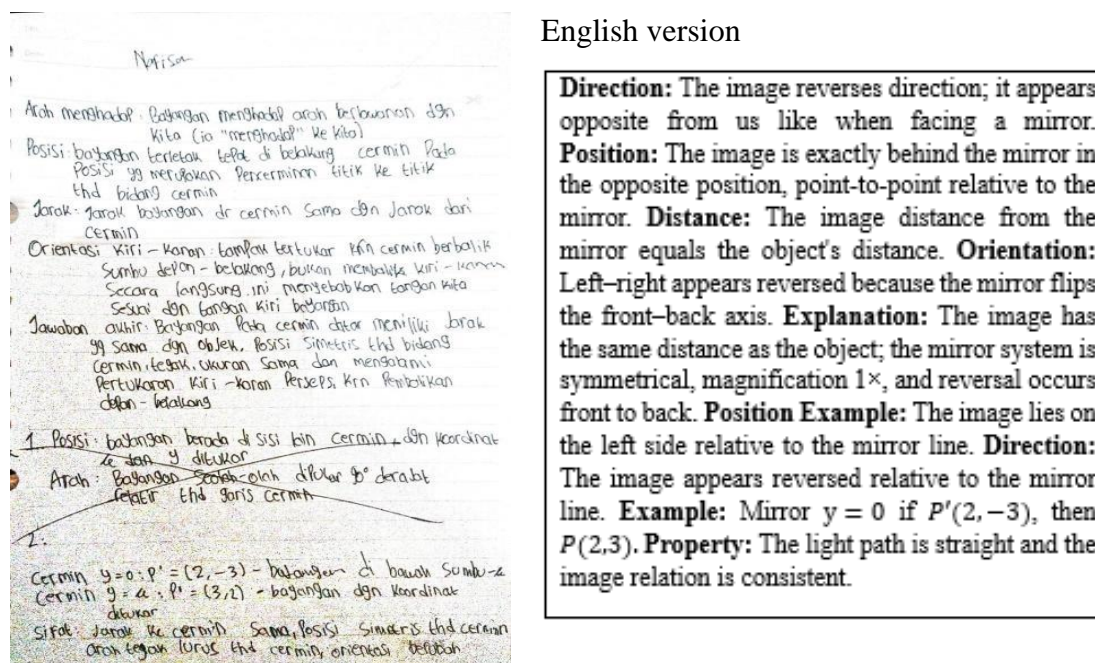 Narisa
Arah menghadap : Bayangan menghadap arah berlawanan dgn
Kita (ia "menghadap" ke kita)
Posisi : bayangan terletak tepat di belakang cermin Pada
Posisi yg merupakan Pencerminan titik ke titik
thd bidang cermin
Jarak : Jarak bayangan dr cermin Sama dgn Jarak dari
cermin
Orientasi Kiri - Kanan : tampak tertukar krn cermin berbalik
Sumbu depan - belakang, bukan membalik kiri - kanan
Secara langsung. ini menyebabkan tangan kita
Sesuai dgn tangan Kiri bayangan
Jawaban akhir : Bayangan Pada cermin datar memiliki Jarak
yg sama dgn objek, Posisi Simetris thd bidang
cermin, tegak, ukuran Sama dan mengalami
Pertukaran Kiri - kanan Persepsi krn Pembalikan
depan - belakang
1. Posisi : bayangan berada di sisi lain cermin, dgn koordinat
dan y ditukar
Arah : Bayangan Seolah-olah diputar 90° derajat
relatif thd garis cermin
2.
Cermin y=0 : P' = (2,-3) - bayangan di bawah Sumbu-x
Cermin y = x : P' = (3,2) - bayangan dgn Koordinat
ditukar
Sifat : Jarak ke cermin Sama, Posisi Simetris thd cermin
arah tegak lurus thd cermin, orientasi berubah
English version
Direction: The image reverses direction; it appears
opposite from us like when facing a mirror.
Position: The image is exactly behind the mirror in
the opposite position, point-to-point relative to the
mirror. Distance: The image distance from the
mirror equals the object's distance. Orientation:
Left–right appears reversed because the mirror flips
the front–back axis. Explanation: The image has
the same distance as the object; the mirror system is
symmetrical, magnification 1×, and reversal occurs
front to back. Position Example: The image lies on
the left side relative to the mirror line. Direction:
The image appears reversed relative to the mirror
line. Example: Mirror y = 0 if P′(2,−3), then
P(2,3). Property: The light path is straight and the
image relation is consistent.